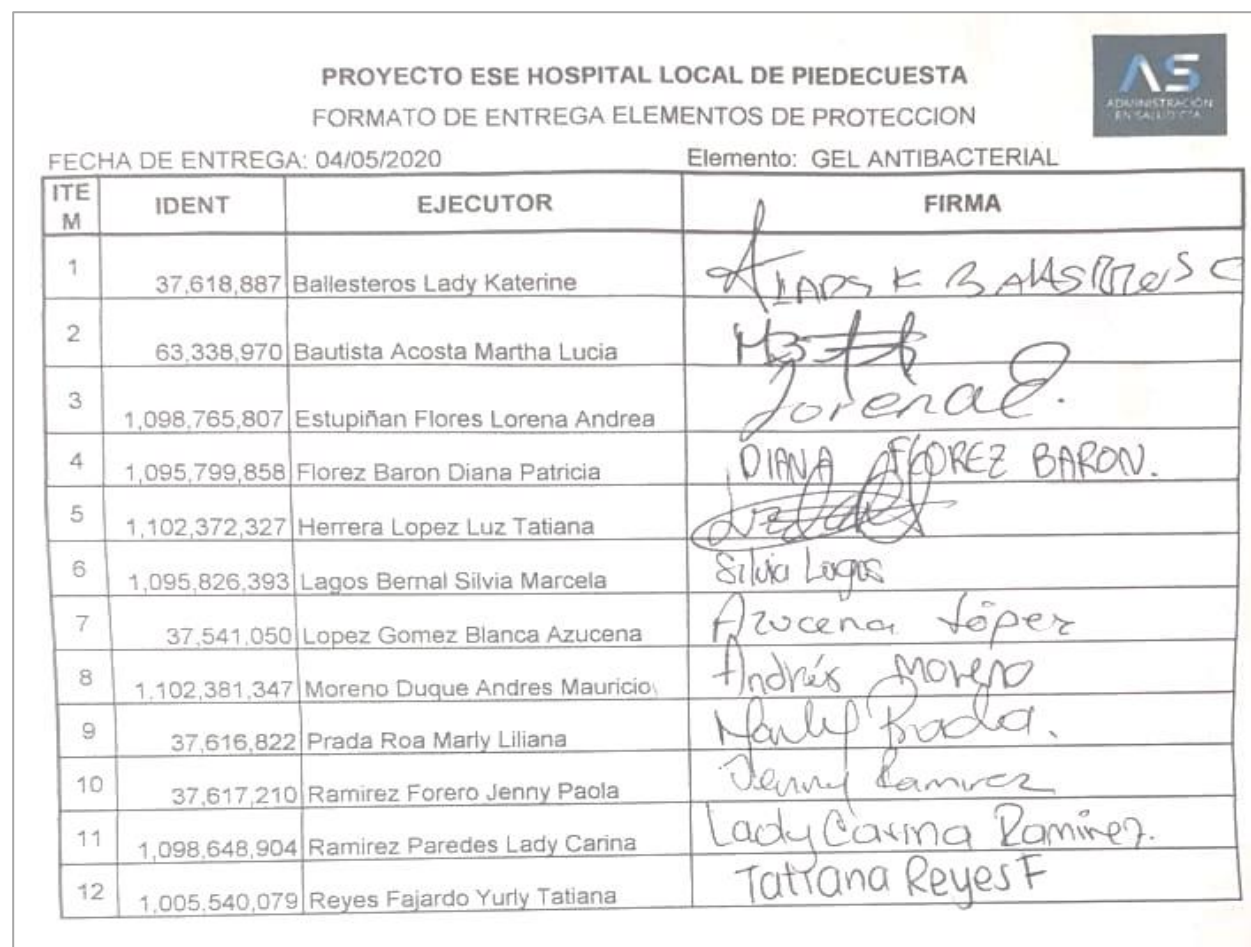 PROYECTO ESE HOSPITAL LOCAL DE PIEDECUESTA
AS
ADMINISTRACIÓN
EN SALUD CTA
FORMATO DE ENTREGA ELEMENTOS DE PROTECCION
FECHA DE ENTREGA: 04/05/2020 Elemento: GEL ANTIBACTERIAL
ITE
M IDENT EJECUTOR FIRMA
1 37,618,887 Ballesteros Lady Katerine
2 63,338,970 Bautista Acosta Martha Lucia
3 1,098,765,807 Estupiñan Flores Lorena Andrea Lorena E.
4 1,095,799,858 Florez Baron Diana Patricia DIANA FLOREZ BARON.
5 1,102,372,327 Herrera Lopez Luz Tatiana
6 1,095,826,393 Lagos Bernal Silvia Marcela Silvia Lagos
7 37,541,050 Lopez Gomez Blanca Azucena Azucena López
8 1.102,381,347 Moreno Duque Andres Mauricio Andrés Moreno
9 37,616,822 Prada Roa Marly Liliana Marly Prada.
10 37,617,210 Ramirez Forero Jenny Paola Jenny Ramirez
11 1,098,648,904 Ramirez Paredes Lady Carina Lady Carina Ramirez.
12 1,005,540,079 Reyes Fajardo Yurly Tatiana Tatiana Reyes F